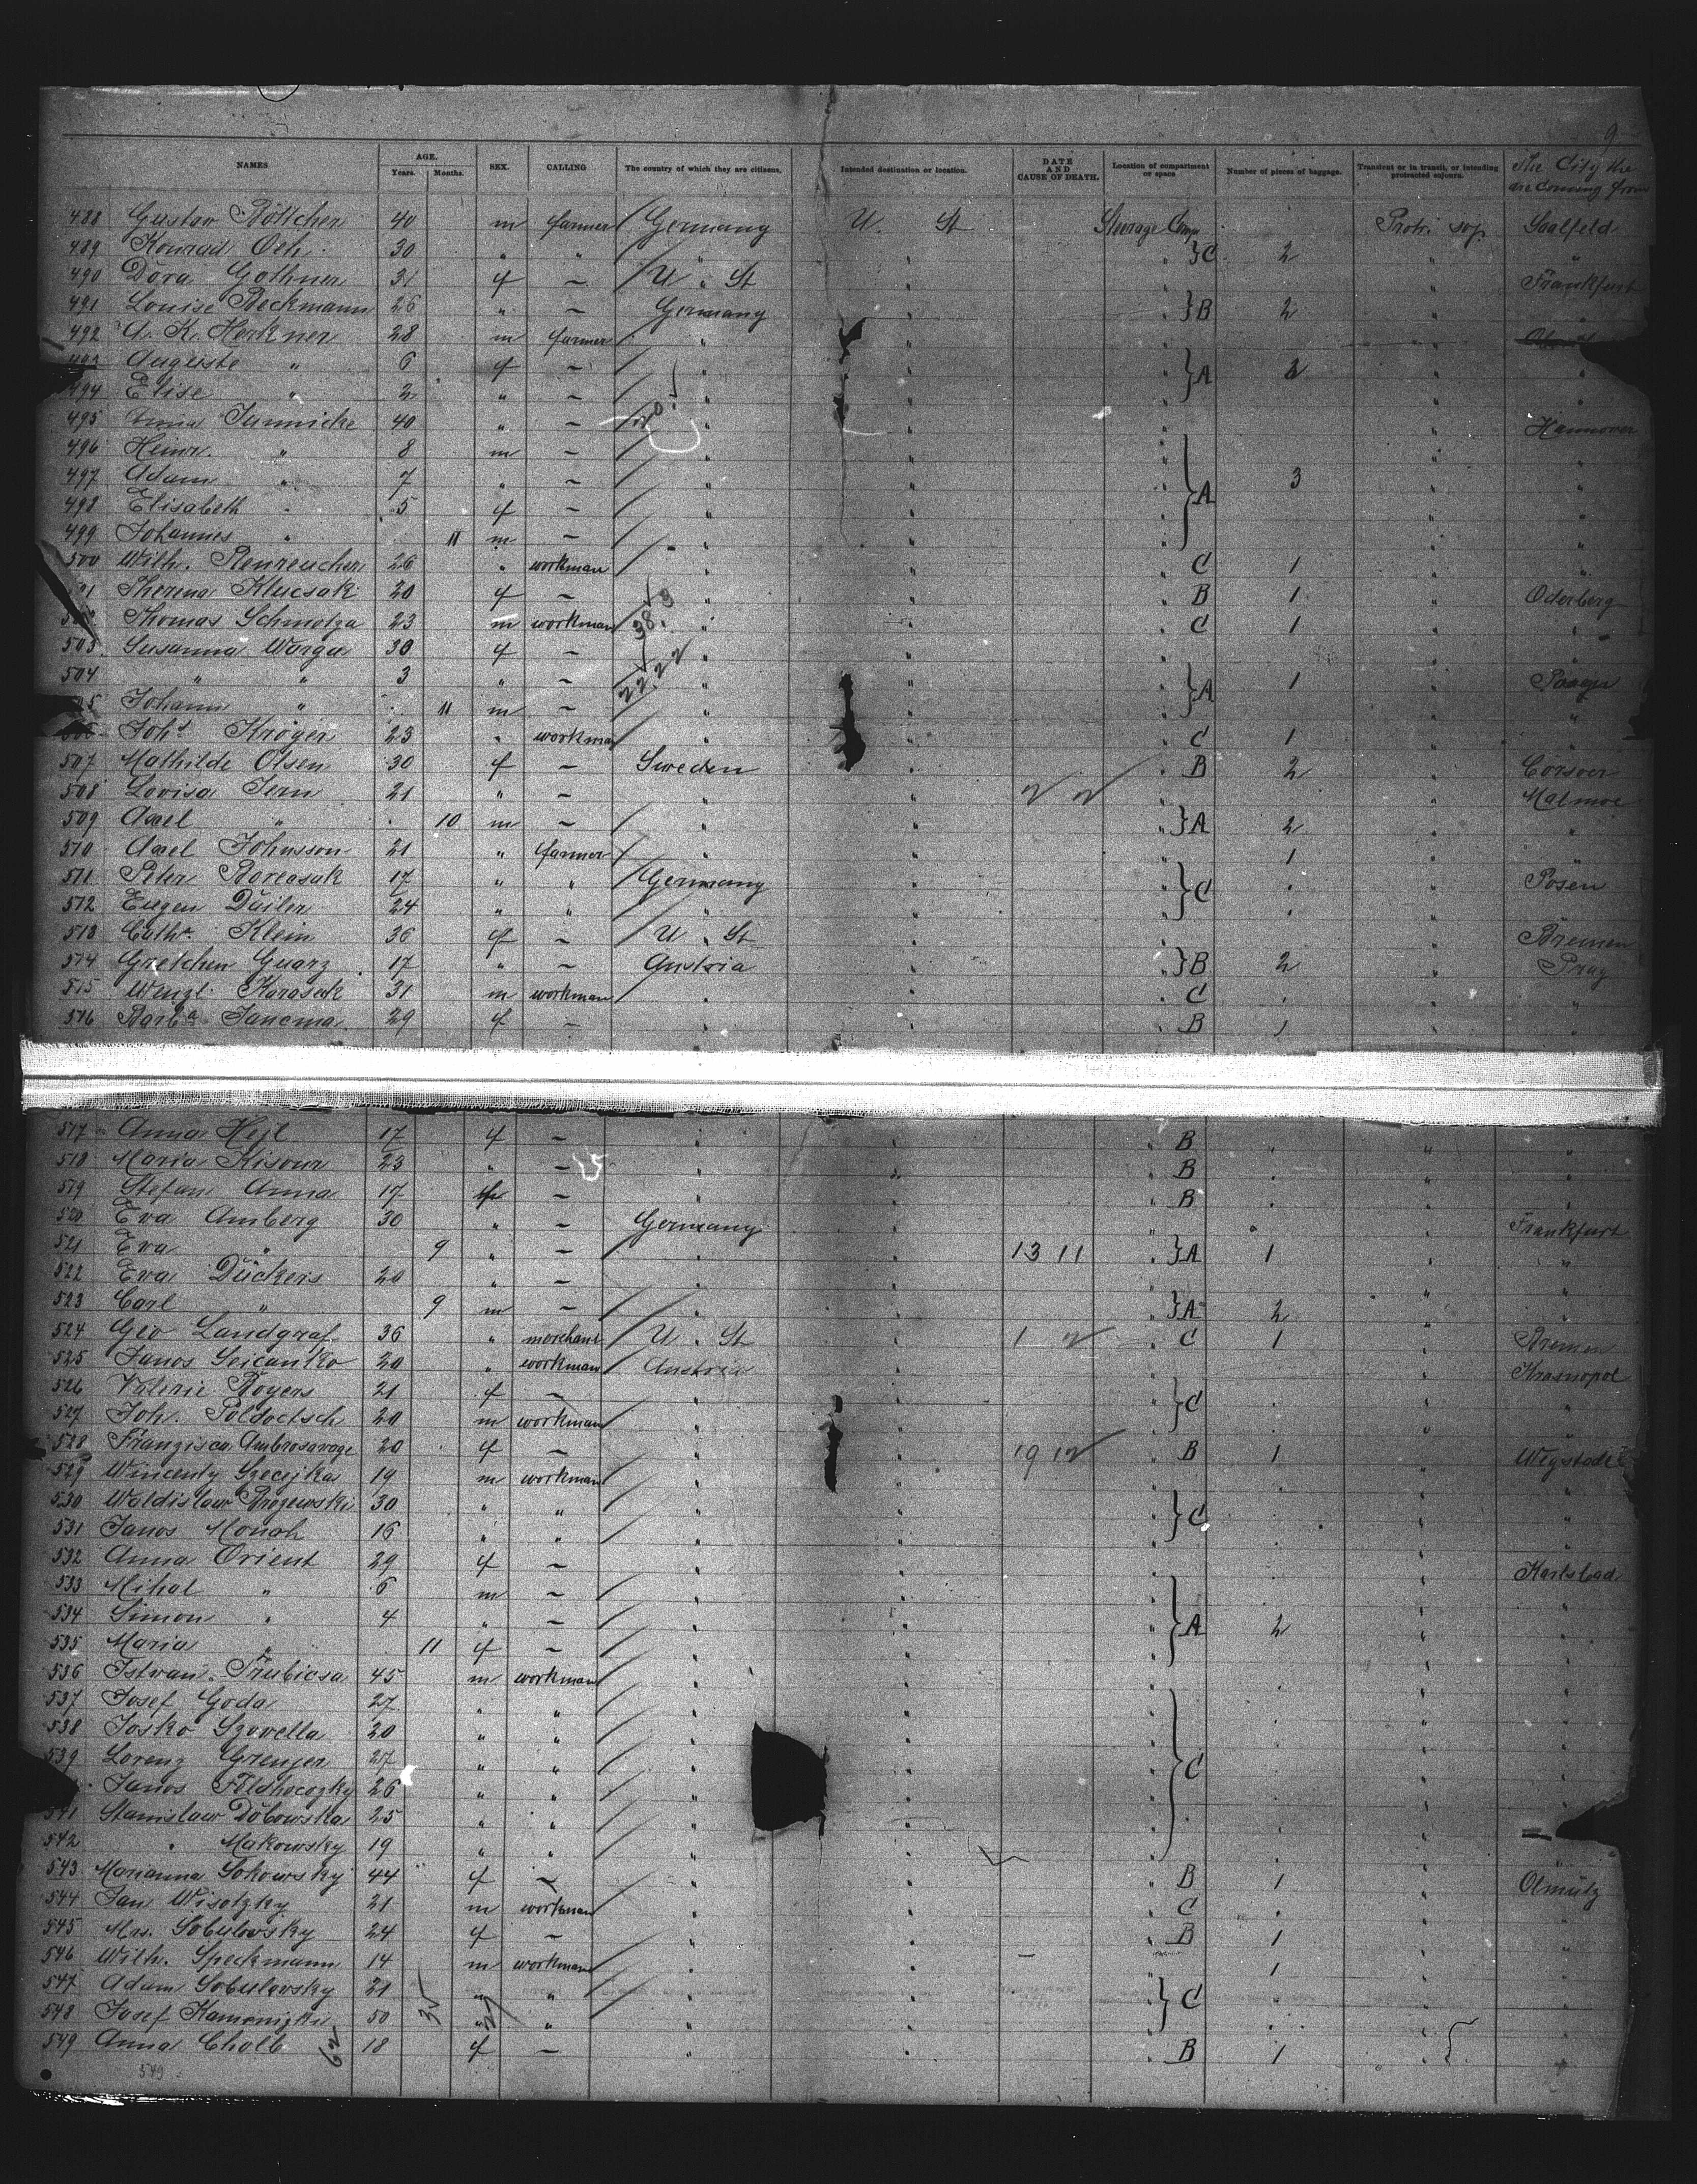 9
NAMES AGE. Years. Months. SEX. CALLING The country of which they are citizens. Intended destination or location. DATE AND CAUSE OF DEATH. Location of compartment or space Number of pieces of baggage. Transient or in transit, or intending protracted sojourn. The City the are Coming from
488 Gustav Böttcher 40 m farmer Germany U. St Steerage Comp Protr. soj. Saalfeld
489 Konrad Oeh 30 " " " " " } C 2 " "
490 Dora Gothner 31 f — U. St " " " Frankfurt
491 Louise Beckmann 26 " — Germany " " } B 2 " "
492 A. K. Herkner 28 m farmer " " " "
493 Auguste " 6 f — " " " } A 2 " "
494 Elise " 2 " — " " " " "
495 Anna Junnicke 40 " — " " " " Hannover
496 Heinr. " 8 m — " " " " "
497 Adam " 7 " — " " " } A 3 " "
498 Elisabeth " 5 f — " " " " "
499 Johannes " 11 m — " " " " "
500 Wilh. Renreucher 26 " workman " " " C 1 " "
501 Theresa Klucsak 20 f — " " " B 1 " Oderberg
502 Thomas Schmotza 23 m workman " " " C 1 " "
503 Susanna Warga 30 f — " " " " "
504 " " 3 " — " " " } A 1 "
505 Johann " 11 m — " " " " "
506 Johs Kröger 23 " workman " " " C 1 " "
507 Mathilde Olsen 30 f — Sweden " " B 2 " Corsoer
508 Lovisa Jern 21 " — " " " " Malmoe
509 Axel " 10 m — " " " } A 2 " "
510 Axel Johnsson 21 " farmer " " " 1 " "
511 Peter Boreasak 17 " " Germany " " } C " " Posen
512 Eugen Düiler 24 " " " " " " " "
513 Cathr. Klein 36 f — U. St " " " Bremen
514 Gretchen Guarz 17 " — Austria " " } B 2 " Prag
515 Wenzl Karasek 31 m workman " " " C " " "
516 Barba Janema 29 f — " " " B 1 " "
517 Anna Hejl 17 f — " " " B " " "
518 Maria Kisour 23 " — " " " B " " "
519 Stefan Anna 17 f — " " " B " " "
520 Eva Amberg 30 " — Germany " " " Frankfurt
521 Eva " 9 " — " " 13 11 " } A 1 " "
522 Eva Dückers 20 " — " " " " "
523 Carl " 9 m — " " " } A 2 " "
524 Geo Landgraf 36 " merchant U. St " 1 2 " C 1 " Bremen
525 Janos Seicanko 20 " workman Austria " " " Krasnopol
526 Valerie Royers 21 f — " " " } C " " "
527 Joh. Poldoctsch 20 m workman " " " " " "
528 Franzisca Ambrosavage 20 f — " " 19 12 " B 1 " Wegstadt
529 Wincenty Szecejka 19 m workman " " " " "
530 Woldislaw Brozewski 30 " " " " " } C " " "
531 Janos Monah 16 " " " " " " " "
532 Anna Orient 29 f — " " " " Karlsbad
533 Mihal " 6 m — " " " " "
534 Simon " 4 " — " " " } A 2 " "
535 Maria " 11 f — " " " " "
536 Istvan Trubicsa 45 m workman " " " " " "
537 Josef Goda 27 " " " " " " " "
538 Josko Szovella 20 " " " " " " " "
539 Lorenz Grenjer 27 " " " " " } C " " "
Janos Földhocozky 26 " " " " " " " "
541 Stanislaw Dobowska 25 " " " " " " "
542 " Makowsky 19 " " " " " " " "
543 Marianna Sokowsky 44 f — " " " B 1 " Olmütz
544 Jan Wisotzky 21 m workman " " " C " " "
545 Mrs. Sobulovsky 24 f — " " " B 1 " "
546 Wilh. Speckmann 14 m workman " " " 1 " "
547 Adam Sobulovsky 21 " " " " " } C " " "
548 Josef Kamenizki 50 " " " " " " " "
549 Anna Cholb 18 f — " " " B 1 " "
549